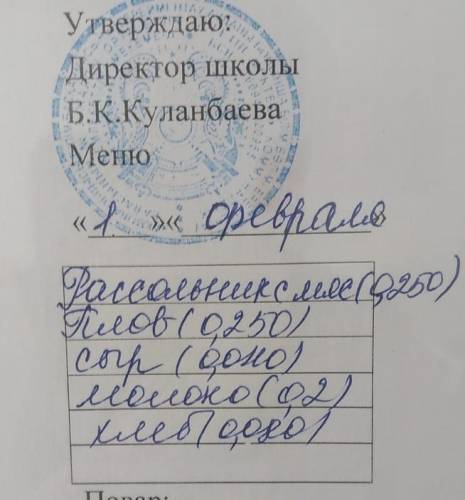 Утверждаю:
Директор школы
Б.К.Куланбаева
Меню
« 1 »« февраля »
Рассольник с мяс (0,250)
Плов (0,250)
сыр (0,010)
молоко (0,2)
хлеб (0,080)
Повар: